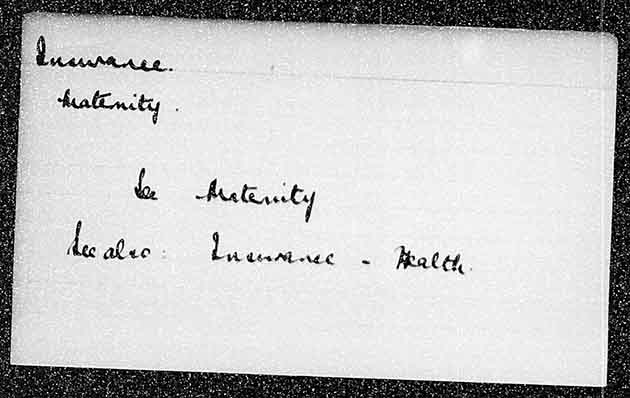 Insurance.
Maternity.
See Maternity
See also: Insurance - Health.